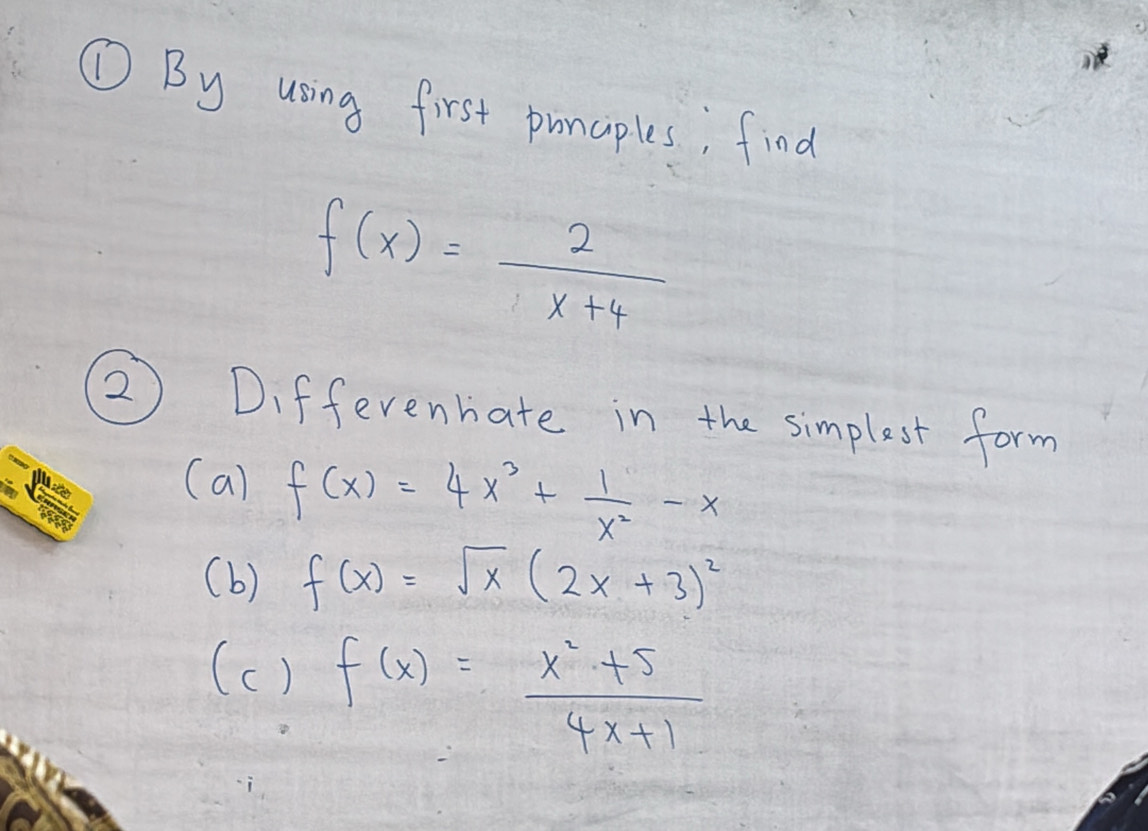 ① By using first principles, find
f(x) = 2 / (x + 4)
② Differentiate in the simplest form
(a) f(x) = 4x³ + 1/x² - x
(b) f(x) = √x (2x + 3)²
(c) f(x) = (x² + 5) / (4x + 1)